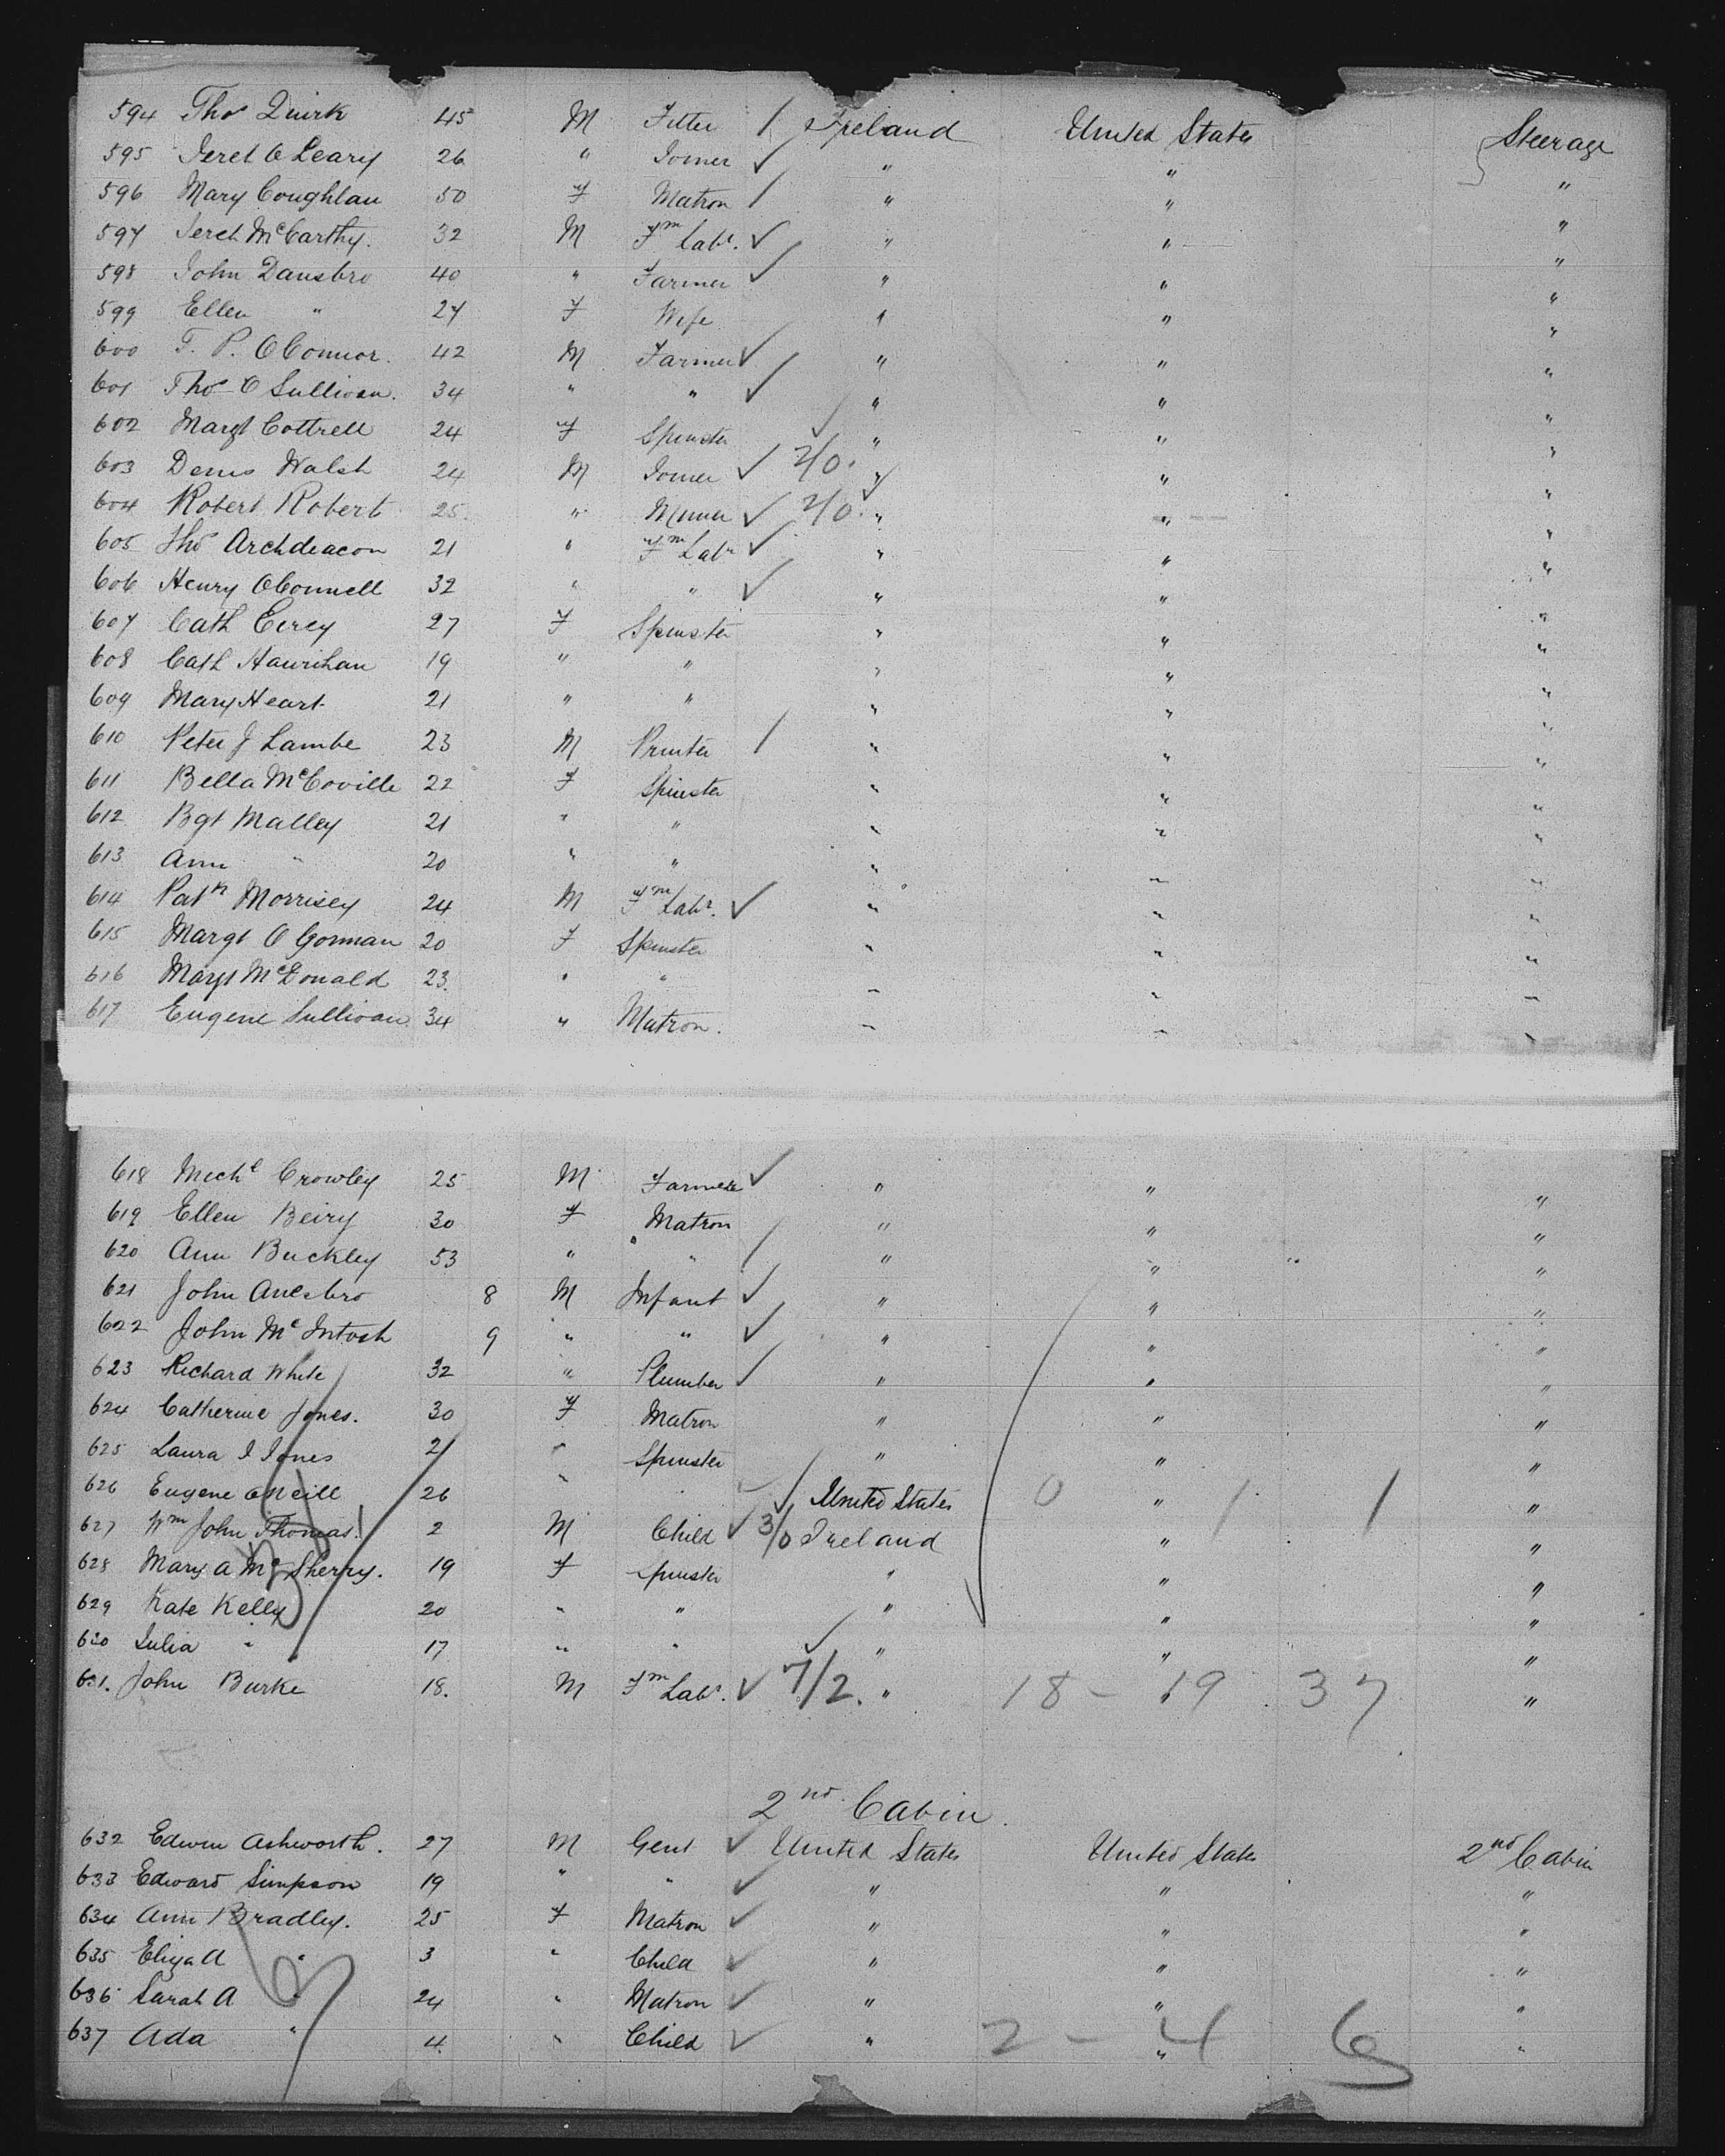 594 Thos Quirk 45 M Fitter / Ireland United States Steerage
595 Jereh O Leary 26 " Joiner ✓ " " "
596 Mary Coughlan 50 F Matron / " " "
597 Jereh McCarthy. 32 M Fm Labr. ✓ " " "
598 John Dansbro 40 " Farmer ✓ " " "
599 Ellen " 27 F Wife " " "
600 T. P. OConnor. 42 M Farmer ✓ " " "
601 Thos O Sullivan. 34 " " ✓ " " "
602 Margt Cottrell 24 F Spinster " " "
603 Denis Walsh 24 M Joiner ✓ 2/0. " " "
604 Robert Robert 25. " Miner ✓ 2/0. " " "
605 Thos Archdeacon 21 " Fm Labr ✓ " " "
606 Henry OConnell 32 " " ✓ " " "
607 Cath 27 F Spinster " " "
608 Cath Hawrihan 19 " " " " "
609 Mary Heart 21 " " " " "
610 Peter J Lambe 23 M Printer / " " "
611 Bella McCoville 22 F Spinster " " "
612 Bgt Malley 21 " " " " "
613 Ann " 20 " " " " "
614 Patk Morrisey 24 M Fm Labr. ✓ " " "
615 Margt O Gorman 20 F Spinster " " "
616 Margt McDonald 23. " " " " "
617 Eugene Sullivan 34 " Matron. " " "
618 Michl Crowley 25 M Farmer ✓ " " "
619 Ellen Beiry 30 F Matron " " "
620 Ann Buckley 53 " " / " " "
621 John Anesbro 8 M Infant ✓ " " "
622 John Mc Intosh 9 " " ✓ " " "
623 Richard White 32 " Plumber ✓ " " "
624 Catherine Jones. 30 F Matron " " "
625 Laura I Jones 21 " Spinster " " "
626 Eugene ONeill 26 " United States 0 " / / "
627 Wm John Thomas. 2 M Child ✓ 3/0 Ireland " "
628 Mary A McSherry. 19 F Spinster " " "
629 Kate Kelly 20 " " " " "
630 Julia " 17 " " " " "
631. John Burke 18. M Fm Labr. ✓ 7/2. " 18 - 19 37 "
2nd Cabin
632 Edwin Ashworth. 27 M Gent ✓ United States United States 2nd Cabin
633 Edward Simpson 19 " " ✓ " " "
634 Ann Bradley. 25 F Matron ✓ " " "
635 Eliza A " 3 " Child ✓ " " "
636 Sarah A " 24 " Matron ✓ " " "
637 Ada " 4 " Child ✓ " 2 - 4 6 "